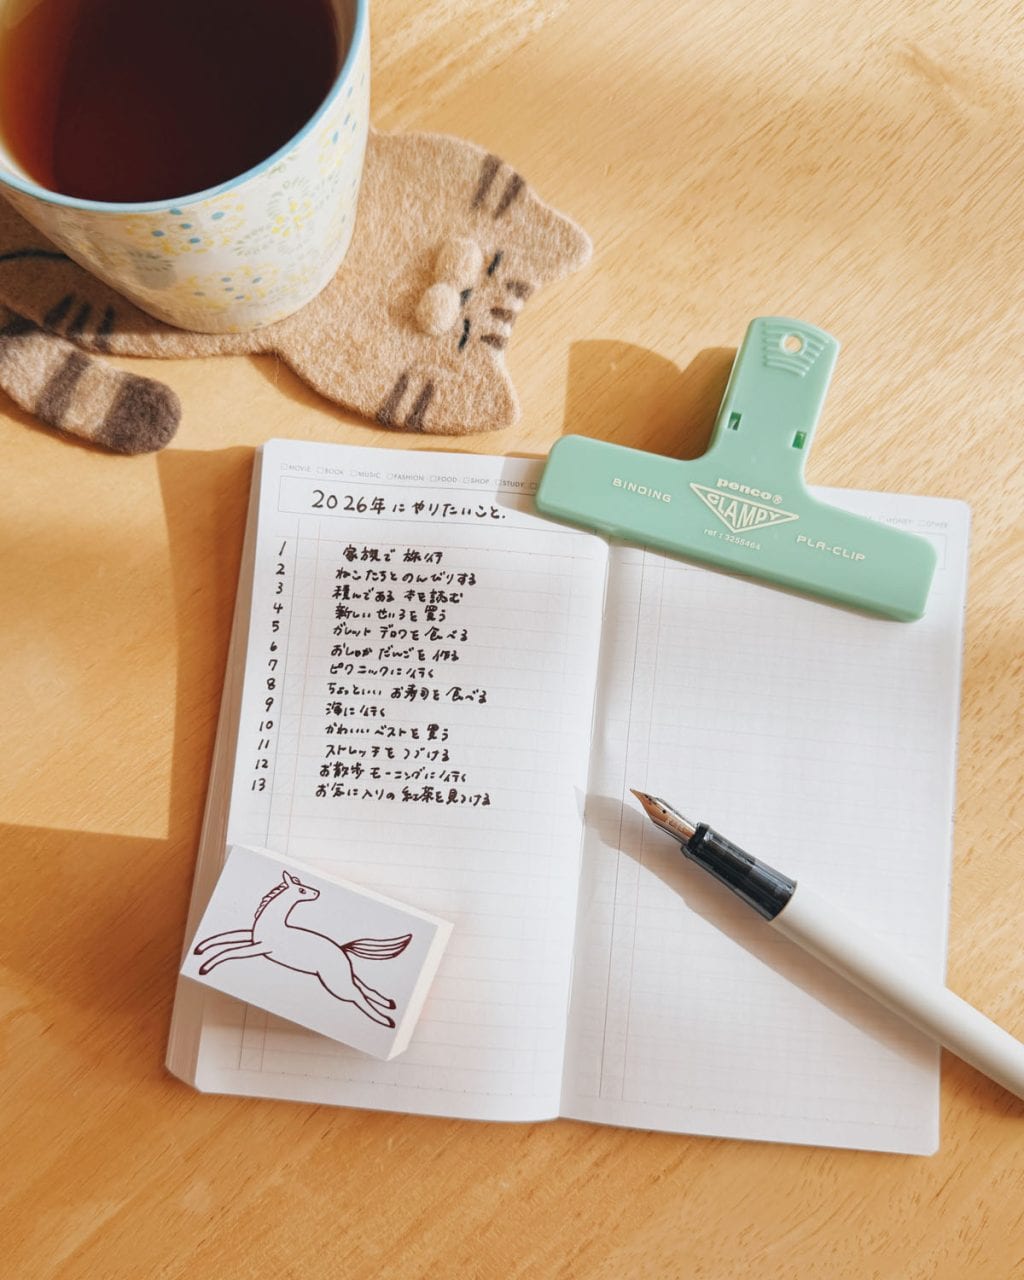 □MOVIE □BOOK □MUSIC □FASHION □FOOD □SHOP □STUDY
□MONEY □OTHER
2026年にやりたいこと.
1 家族で旅行
2 ねこたちとのんびりする
3 積んである本を読む
4 新しいせいろを買う
5 ガレットデロワを食べる
6 おしゅがだんごを作る
7 ピクニックに行く
8 ちょっといいお寿司を食べる
9 海に行く
10 かわいいベストを買う
11 ストレッチをつづける
12 お散歩モーニングに行く
13 お気に入りの紅茶を見つける
BINDING
penco®
CLAMPY
ref : 3255464
PLA-CLIP